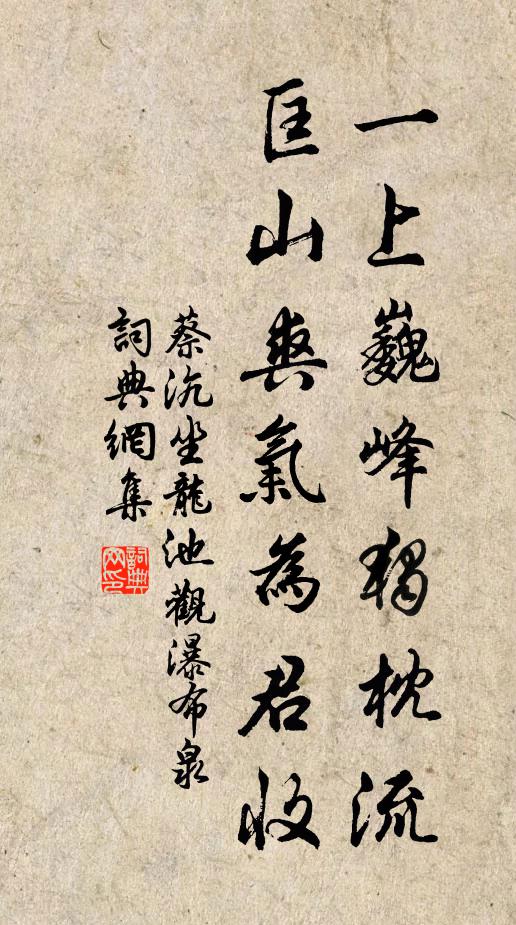 一上巍峰独枕流
匡山爽氣為君收
蔡沉坐龍池觀瀑布泉
詞典網集
詞典網印